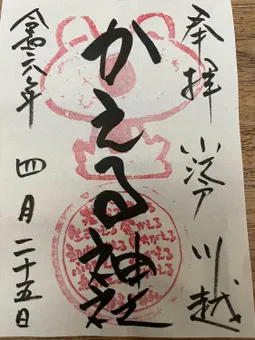 奉拝 小江戸 川越
かえる神社
令和六年 四月二十五日